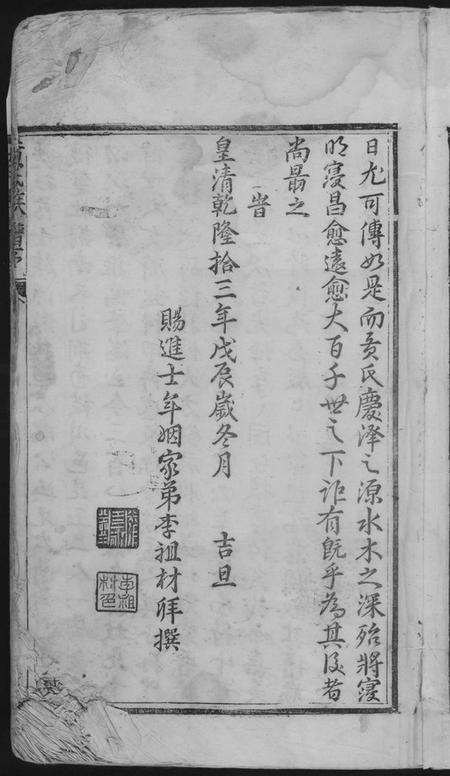 日尤可傳如是而黃氏慶澤之源水木之深殆將寖
明寖昌愈遠愈大百千世之下詎有既乎為其後者
尚勗之
旹
皇清乾隆拾三年戊辰歲冬月 吉旦
賜進士年姻家弟李祖材拜撰